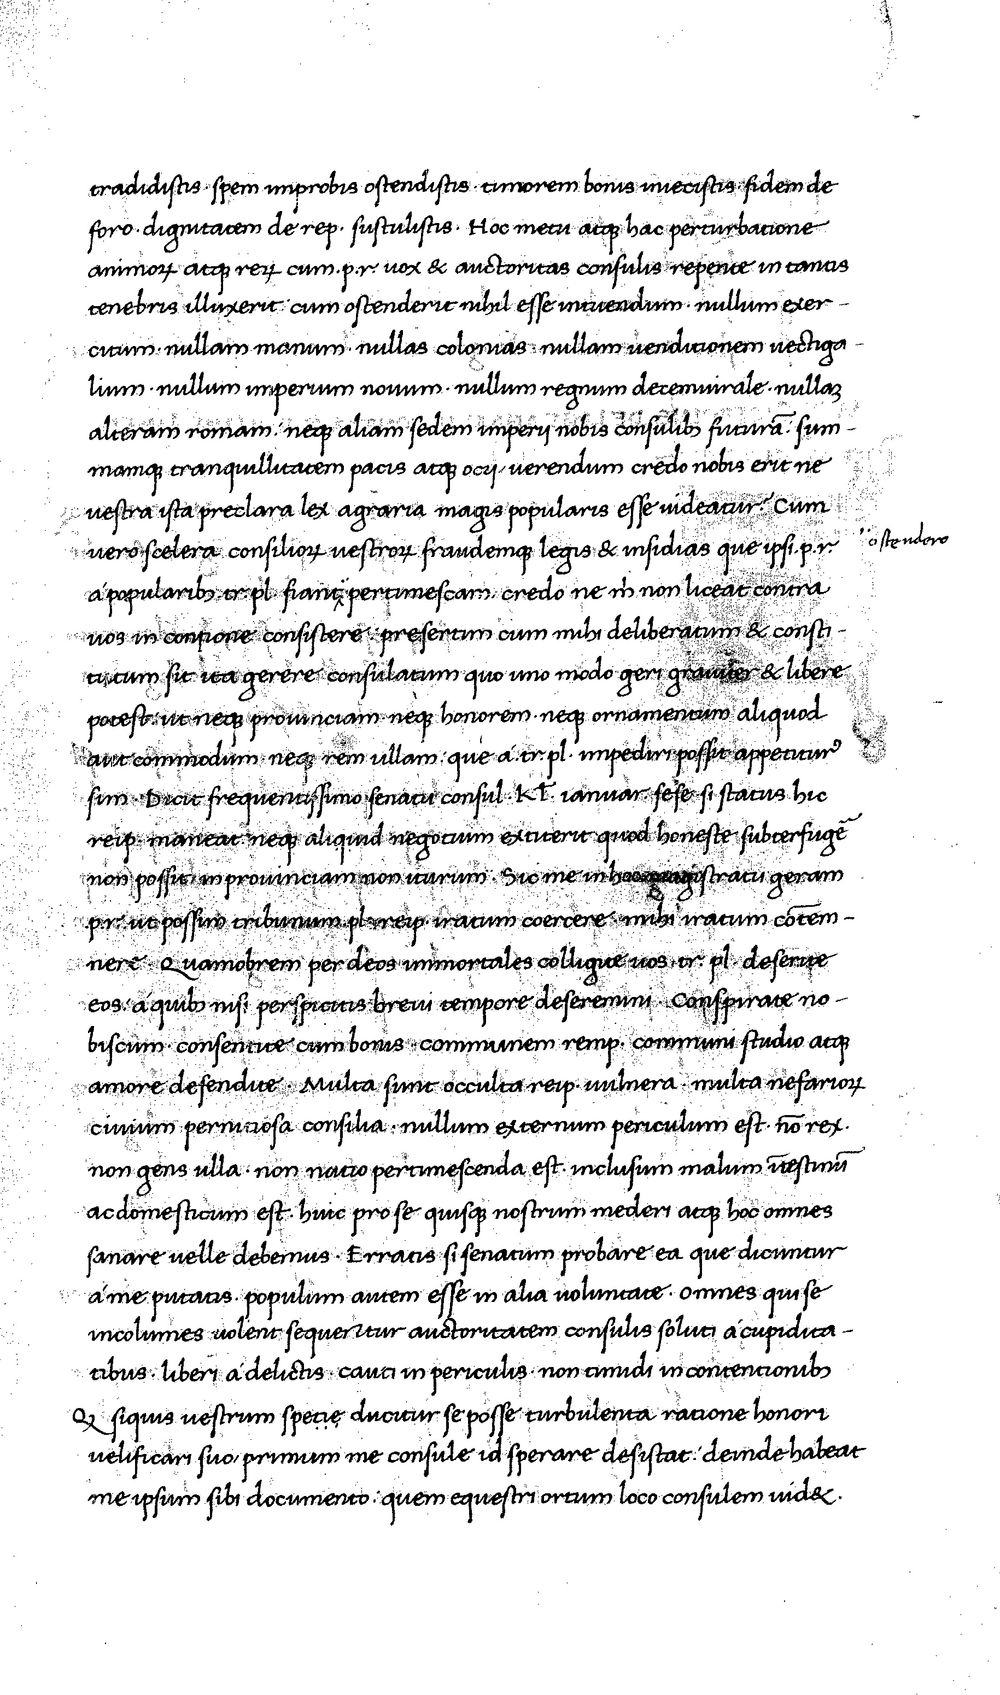 tradidistis · spem improbis ostendistis · timorem bonis iniecistis · fidem de
foro · dignitatem de rep. sustulistis · Hoc metu atqꝫ hac perturbatione
animoꝝ atqꝫ reꝝ cum .p.r. uox & auctoritas consulis repente in tantis
tenebris illuxerit cum ostenderit nihil esse intuendum · nullum exer-
citum · nullam manum · nullas colonias · nullam uenditionem uectiga-
lium · nullum imperium nouum · nullum regnum decemuirale · nullaꝫ
alteram romam · neqꝫ aliam sedem imperij nobis consulibꝫ futurā · sum-
mamqꝫ tranquillitatem pacis atqꝫ ocij / uerendum credo nobis erit ne
uestra ista preclara lex agraria magis popularis esse uideatur · Cum
uero scelera consilioꝝ uestroꝝ fraudemqꝫ legis & insidias que ipsi .p.r.
ostendero
a popularibꝫ tr. pl. fiant; pertimescam credo ne m̄ non liceat contra
uos in contione consistere · presertim cum mihi deliberatum & consti-
tutum sit ita gerere consulatum quo uno modo geri grauiter & libere
potest · ut neqꝫ prouinciam neqꝫ honorem · neqꝫ ornamentum aliquod
aut commodum neqꝫ rem ullam que a tr. pl. impediri possit appetiturꝰ
sim · Dicit frequentissimo senatu consul · Kl̄. ianuar. sese si status hic
reip. maneat neqꝫ aliquid negotium extiterit quod honeste subterfugē
non possit · in prouinciam non iturum · Sic me in hoc magistratu geram
p.r. ut possim tribunum pl. reip. iratum coercere · mihi iratum cōtem-
nere · Quamobrem per deos immortales colligite uos · tr. pl. deserite
eos · a quibꝫ nisi perspicitis breui tempore deseremini · Conspirate no-
biscum · consentite cum bonis · communem remp. communi studio atqꝫ
amore defendite · Multa sunt occulta reip. uulnera · multa nefarioꝝ
ciuium pernitiosa consilia · nullum externum periculum est · nō rex ·
non gens ulla · non natio pertimescenda est · inclusum malum ītestinū
ac domesticum est · huic pro se quisqꝫ nostrum mederi atqꝫ hoc omnes
sanare uelle debemus · Erratis si senatum probare ea que dicuntur
a me putatis · populum autem esse in alia uoluntate · omnes qui se
incolumes uolent sequentur auctoritatem consulis soluti a cupidita-
tibus · liberi a delictis · cauti in periculis · non timidi in contentionibꝫ
Q siquis uestrum specie ducitur se posse turbulenta ratione honori
uelificari suo / primum me consule id sperare desistat · deinde habeat
me ipsum sibi documento · quem equestri ortum loco consulem uid& ·